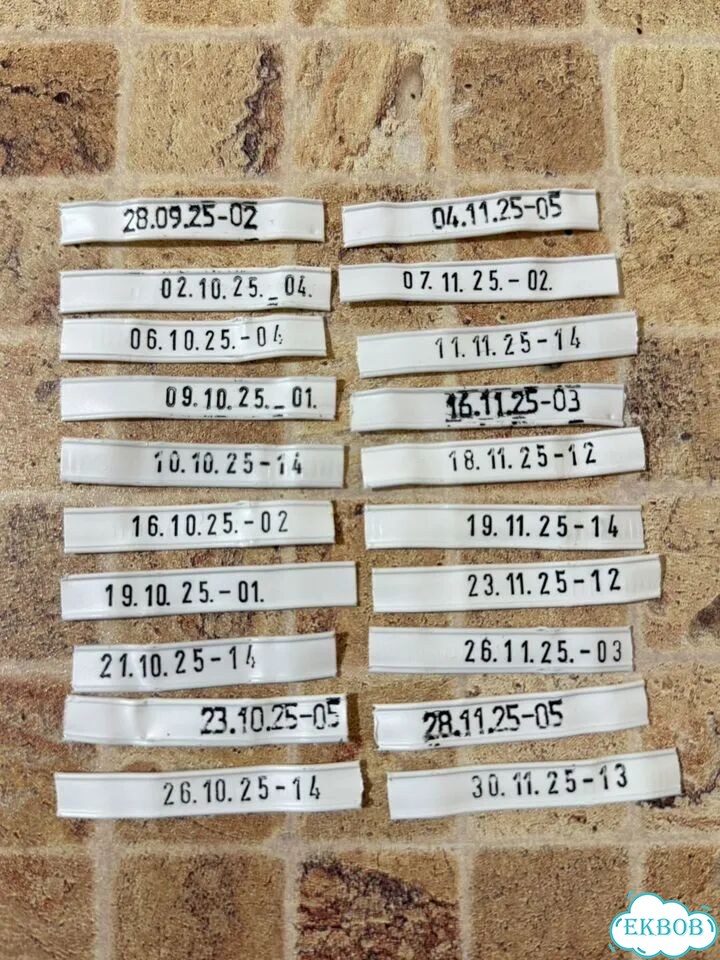 28.09.25-02
02.10.25._04.
06.10.25.-04
09.10.25._01.
10.10.25-14
16.10.25.-02
19.10.25.-01.
21.10.25-14
23.10.25-05
26.10.25-14
04.11.25-05
07.11.25.-02.
11.11.25-14
16.11.25-03
18.11.25-12
19.11.25-14
23.11.25-12
26.11.25.-03
28.11.25-05
30.11.25-13
EKBOB